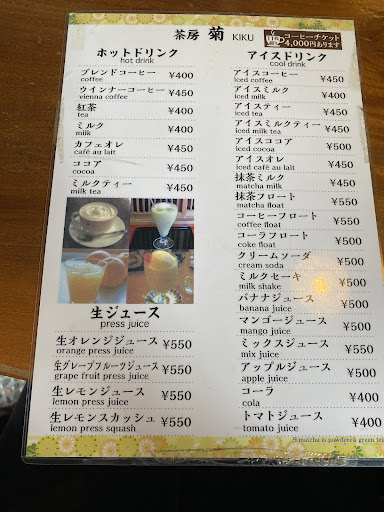 茶房 菊 KIKU
コーヒーチケット
4,000円あります
ホットドリンク
hot drink
ブレンドコーヒー ¥400
coffee
ウインナーコーヒー ¥450
vienna coffee
紅茶 ¥400
tea
ミルク ¥400
milk
カフェオレ ¥450
café au lait
ココア ¥450
cocoa
ミルクティー ¥450
milk tea
生ジュース
press juice
生オレンジジュース ¥550
orange press juice
生グレープフルーツジュース ¥550
grape fruit press juice
生レモンジュース ¥550
lemon press juice
生レモンスカッシュ ¥550
lemon press squash
アイスドリンク
cool drink
アイスコーヒー ¥450
iced coffee
アイスミルク ¥400
iced milk
アイスティー ¥450
iced tea
アイスミルクティー ¥450
iced milk tea
アイスココア ¥500
iced cocoa
アイスオレ ¥450
iced café au lait
抹茶ミルク ¥450
matcha milk
抹茶フロート ¥500
matcha float
コーヒーフロート ¥500
coffee float
コーラフロート ¥500
coke float
クリームソーダ ¥500
cream soda
ミルクセーキ ¥500
milk shake
バナナジュース ¥500
banana juice
マンゴージュース ¥500
mango juice
ミックスジュース ¥550
mix juice
アップルジュース ¥500
apple juice
コーラ ¥400
cola
トマトジュース ¥400
tomato juice
※matcha is powdered green tea